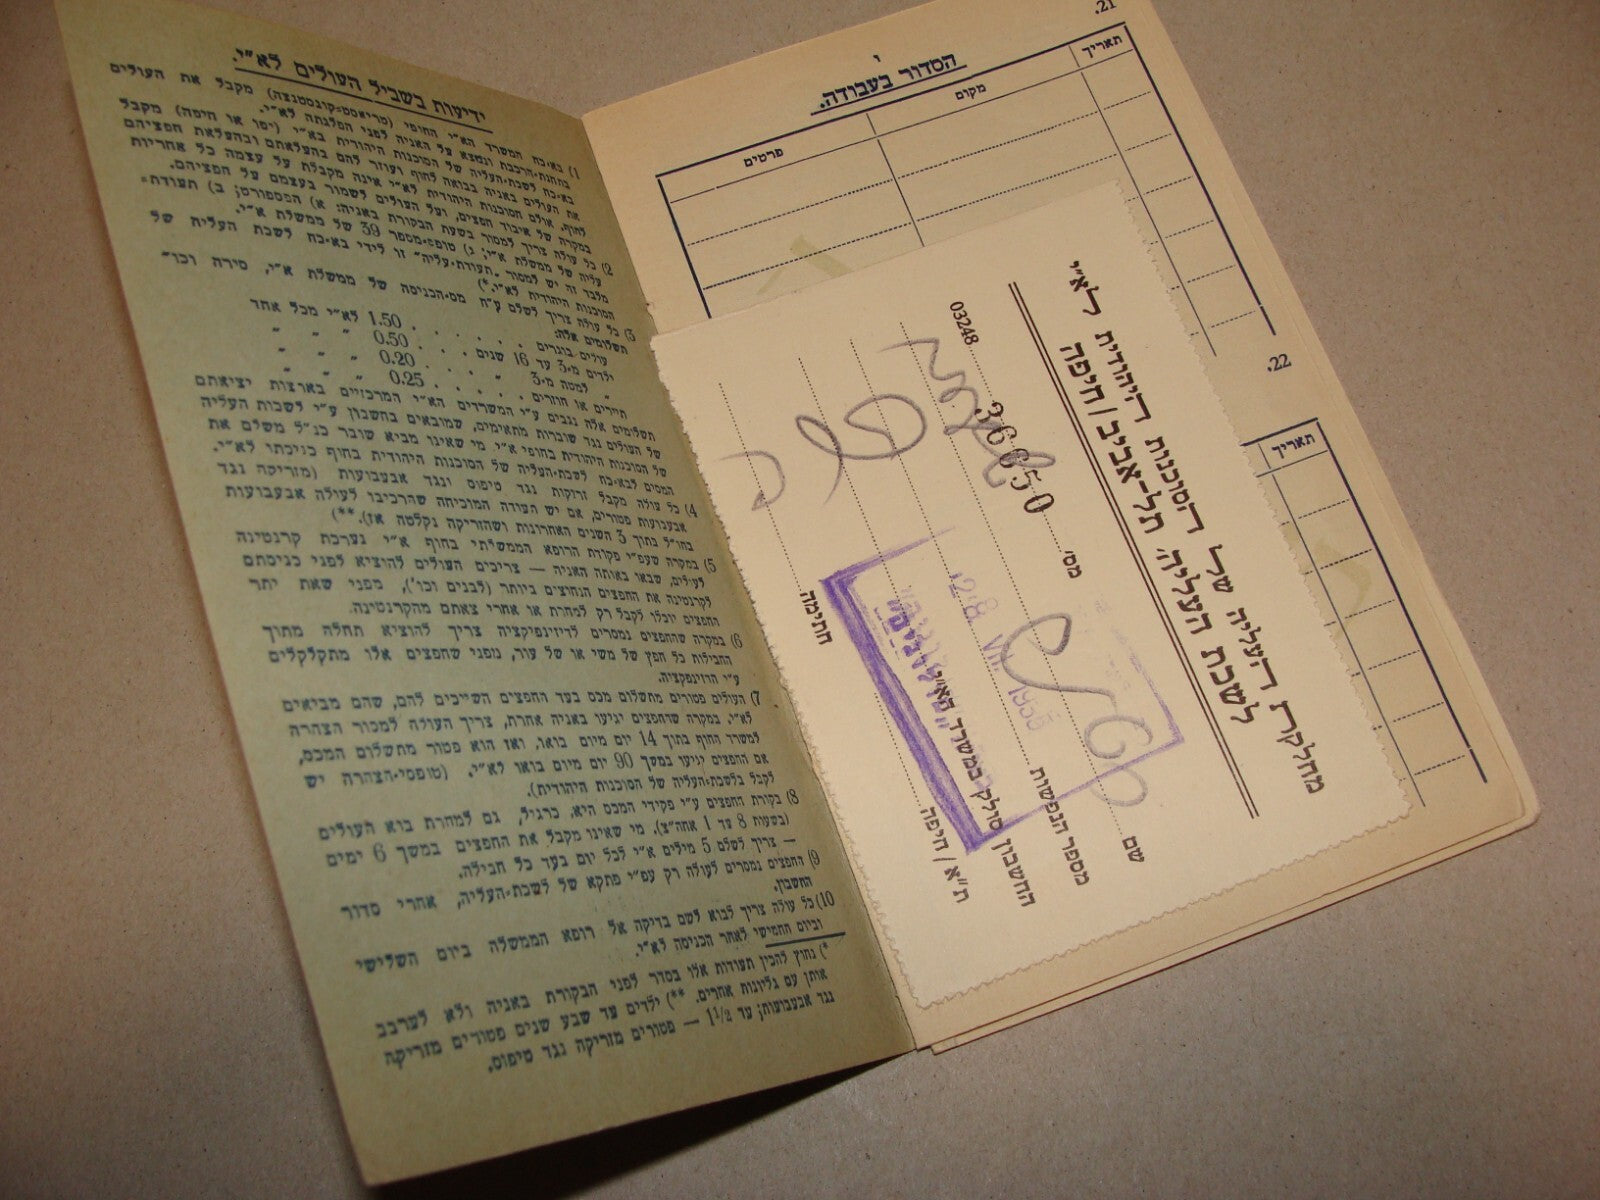 ידיעות בשביל העולים לא"י.
1) בא-כח המשרד הא"י החיפי (טריאסט=קונסטנצה) מקבל את העולים
בתחנת-הרכבת ונמצא על האניה לפני הפלגתה לא"י.
בא-כח לשכת-העליה של הסוכנות היהודית בא"י (יפו או חיפה) מקבל
את העולים באניה בבואה לחוף ועוזר להם בהעלאתם ובהעלאת חפציהם
לחוף. אולם הסוכנות היהודית לא"י אינה מקבלת על עצמה כל אחריות
במקרה של איבוד חפצים, ועל העולים לשמור בעצמם על חפציהם.
2) כל עולה צריך למסור בשעת הבקורת באניה: א) הפספורט; ב) תעודת=
עליה של ממשלת א"י; ג) טופס-מספר 39 של ממשלת א"י.
מלבד זה יש למסור "תעודת-עליה" זו לידי בא-כח לשכת העליה של
הסוכנות היהודית לא"י.*)
3) כל עולה צריך לשלם ע"ח מס-הכניסה של ממשלת א"י, סירה וכו'
תשלומים אלה:
עולים בוגרים . . . . . 1.50 לא"י מכל אחד
ילדים מ-3 עד 16 שנים . . . 0.50 " " "
" למטה מ-3 . . . . 0.20 " " "
תיירים או חוזרים . . . . 0.25 " " "
תשלומים אלה נגבים ע"י המשרדים הא"י המרכזיים בארצות יציאתם
של העולים נגד שוברות מתאימים, שמובאים בחשבון ע"י לשכות העליה
של הסוכנות היהודית בחופי א"י. מי שאינו מביא שובר כנ"ל משלם את
המסים לבא-כח לשכת-העליה של הסוכנות היהודית בחוף כניסתו לא"י.
4) כל עולה מקבל זריקות נגד טיפוס ונגד אבעבועות (מזריקה נגד
אבעבועות פטורים, אם יש תעודה המוכיחה שהרכיבו לעולה אבעבועות
בחו"ל בתוך 3 השנים האחרונות ושהזריקה נקלטה אז).**)
5) במקרה שעפ"י פקודת הרופא הממשלתי בחוף א"י נערכת קרנטינה
לעולים, שבאו באותה האניה — צריכים העולים להוציא לפני כניסתם
לקרנטינה את החפצים הנחוצים ביותר (לבנים וכו'), מפני שאת יתר
החפצים יוכלו לקבל רק למחרת או אחרי צאתם מהקרנטינה.
6) במקרה שהחפצים נמסרים לדיזינפקציה צריך להוציא תחלה מתוך
החבילות כל חפץ של משי או של עור, מפני שחפצים אלו מתקלקלים
ע"י הדזינפקציה.
7) העולים פטורים מתשלום מכס בעד החפצים השייכים להם, שהם מביאים
לא"י. במקרה שהחפצים יגיעו באניה אחרת, צריך העולה למסור הצהרה
למשרד החוף בתוך 14 יום מיום בואו, ואז הוא פטור מתשלום המכס,
אם החפצים יגיעו במשך 90 יום מיום בואו לא"י. (טופסי-הצהרה יש
לקבל בלשכת-העליה של הסוכנות היהודית).
8) בקורת החפצים ע"י פקידי המכס היא, כרגיל, גם למחרת בוא העולים
(בשעות 8 עד 1 אחה"צ). מי שאינו מקבל את החפצים במשך 6 ימים
— צריך לשלם 5 מילים א"י לכל יום בעד כל חבילה.
9) החפצים נמסרים לעולה רק עפ"י פתקא של לשכת-העליה, אחרי סדור
החשבון.
10) כל עולה צריך לבוא לשם בדיקה אל רופא הממשלה ביום השלישי
וביום החמישי לאחר הכניסה לא"י.
*) נחוץ להכין תעודות אלו בסדר לפני הבקורת באניה ולא לערבב
אותן עם גליונות אחרים. **) ילדים עד שבע שנים פטורים מזריקה
נגד אבעבועות; עד 1½ — פטורים מזריקה נגד טיפוס.
21.
י
הסדור בעבודה.
תאריך
מקום
פרטים
22.
תאריך
מחלקת העליה של הסוכנות היהודית לא"י
לשכת העליה, תל-אביב/חיפה
03248
מס' 36650
שם
מספר הנפשות
החשבון סולק במשרד הא"י
ת"א / חיפה
28 VIII 1935
חתימה